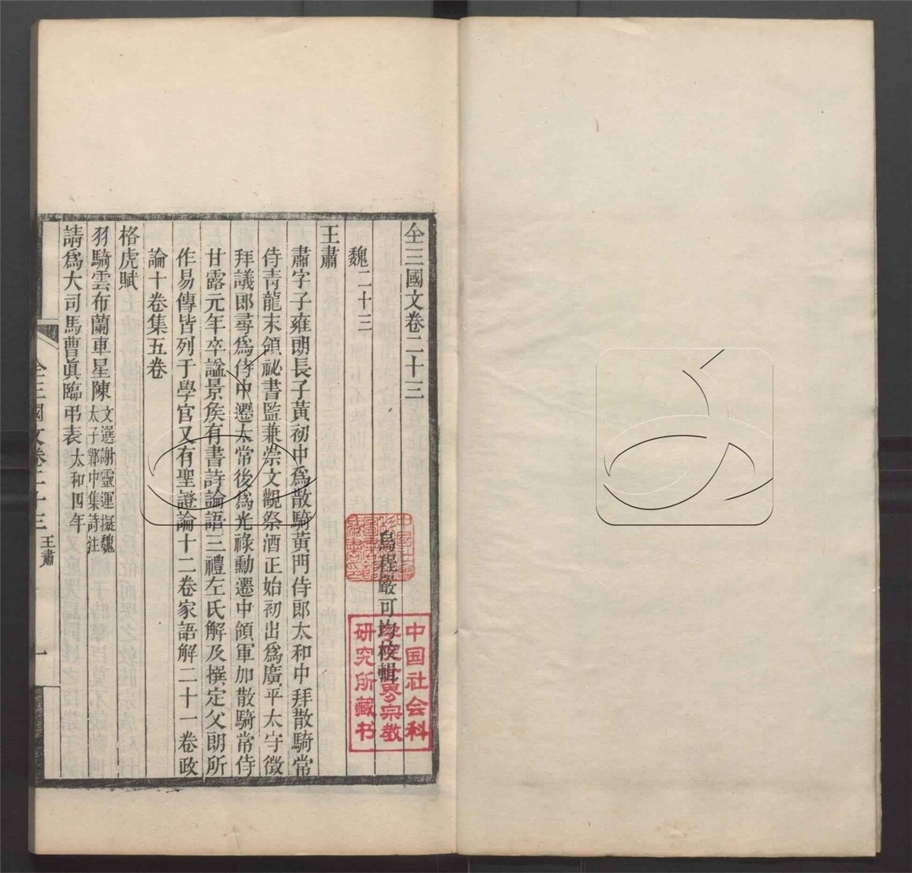 全三國文卷二十三
烏程嚴可均校輯
魏二十三
王肅
肅字子雍朗長子黃初中爲散騎黃門侍郎太和中拜散騎常
侍青龍末領祕書監兼崇文觀祭酒正始初出爲廣平太守徵
拜議郎尋爲侍中遷太常後爲光祿勳遷中領軍加散騎常侍
甘露元年卒諡景矦有書詩論語三禮左氏解及撰定父朗所
作易傳皆列于學官又有聖證論十二卷家語解二十一卷政
論十卷集五卷
格虎賦
羽騎雲布蘭車星陳文選謝靈運擬魏太子鄴中集詩注
請爲大司馬曹眞臨弔表太和四年
全三國文卷二十三 王肅 一
中国社会科
学院世界宗教
研究所藏书